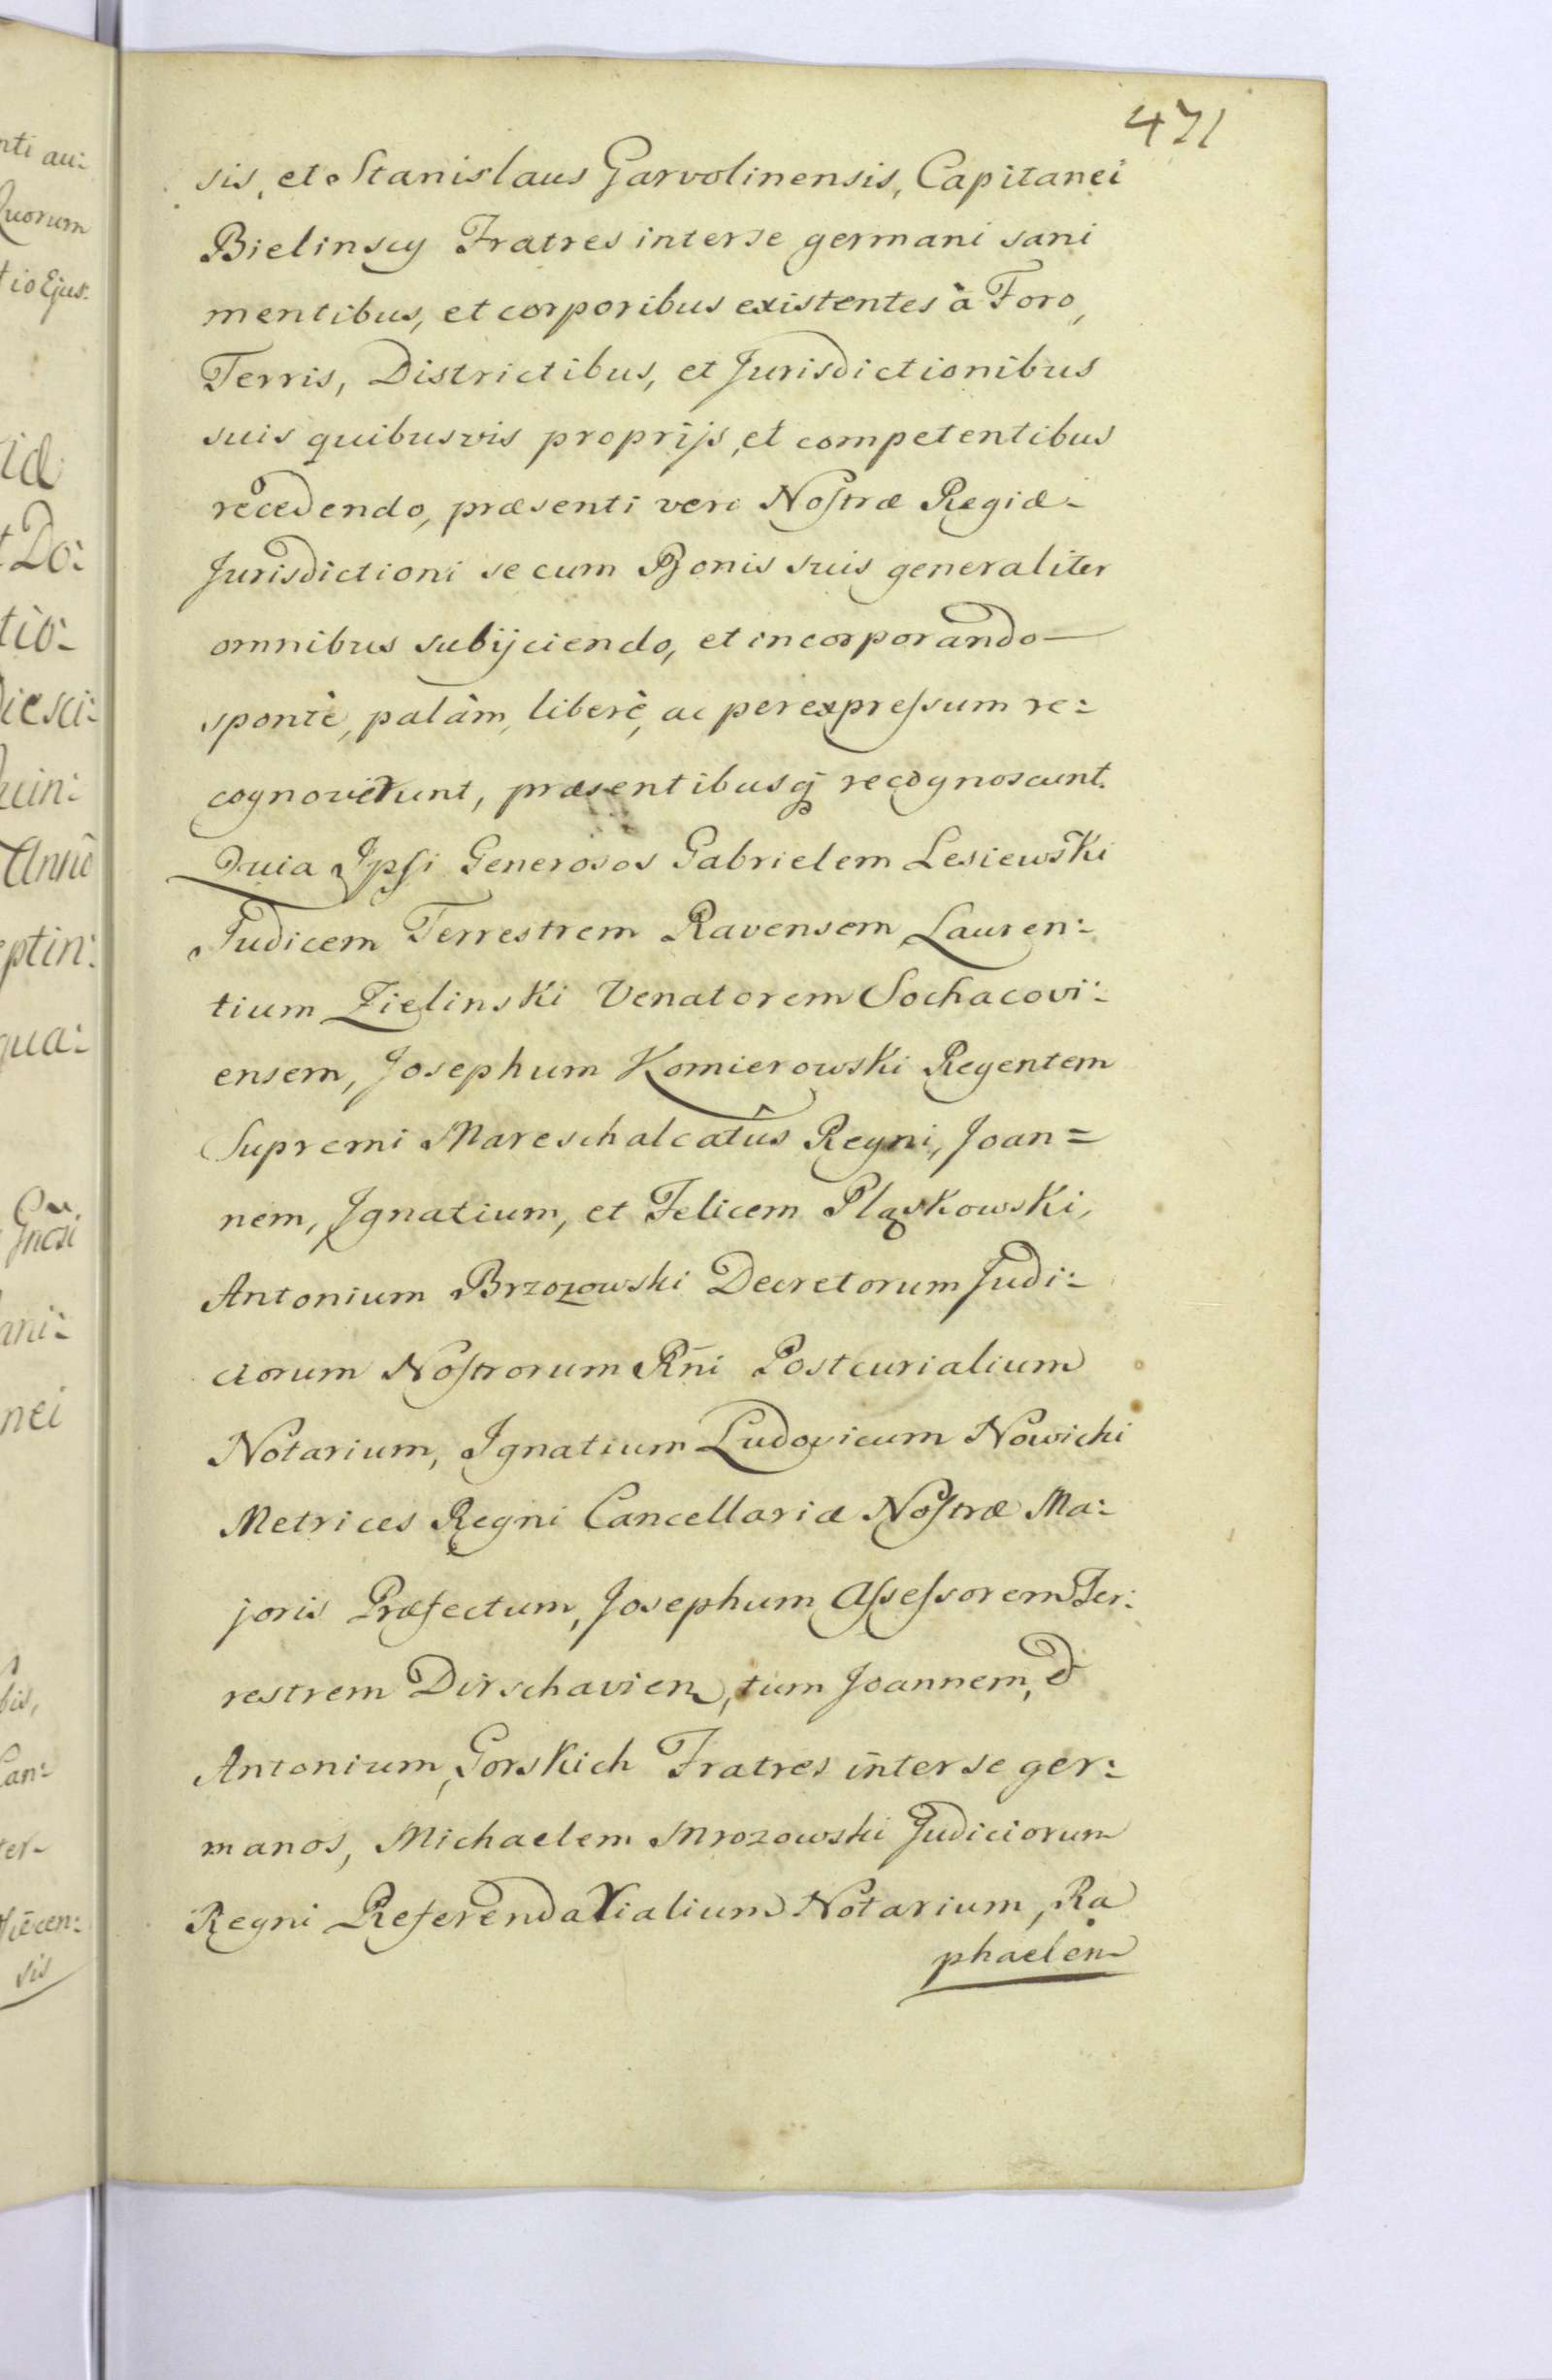 471
sis, et Stanislaus Garvolinensis, Capitanei
Bielinscy Fratres inter se germani sani
mentibus, et corporibus existentes à Foro,
Terris, Districtibus, et Jurisdictionibus
suis quibusvis proprijs, et competentibus
recedendo, præsenti vero Nostræ Regiæ-
Jurisdictioni se cum Bonis suis generaliter
omnibus subijciendo, et incorporando—
spontè, palàm, liberè, ac per expressum re:
cognoverunt, præsentibusq̃ recognoscunt.
Quia Ipsi Generosos Gabrielem Lesiewski
Judicem Terrestrem Ravensem, Lauren:
tium Zielinski Venatorem Sochacovi:
ensem, Josephum Komierowski Regentem
Supremi Mareschalcatûs Regni, Joan=
nem, Ignatium, et Felicem Pląskowski,
Antonium Brzozowski Decretorum Judi:
ciorum Nostrorum Rñi Postcurialium
Notarium, Ignatium Ludovicum Nowicki
Metrices Regni Cancellariæ Nostræ Ma:
joris Præfectum, Josephum Assessorem Ter:
restrem Dirschavien, tum Joannem, &
Antonium, Gorskich Fratres inter se ger:
manos, Michaelem Mrozowski Judiciorum
Regni Referendarialium Notarium, Ra
phaelem
nti au:
Quorum
tio Ejus:
t Do:
tio-
Anno
eptin:
qua:
nei
sis